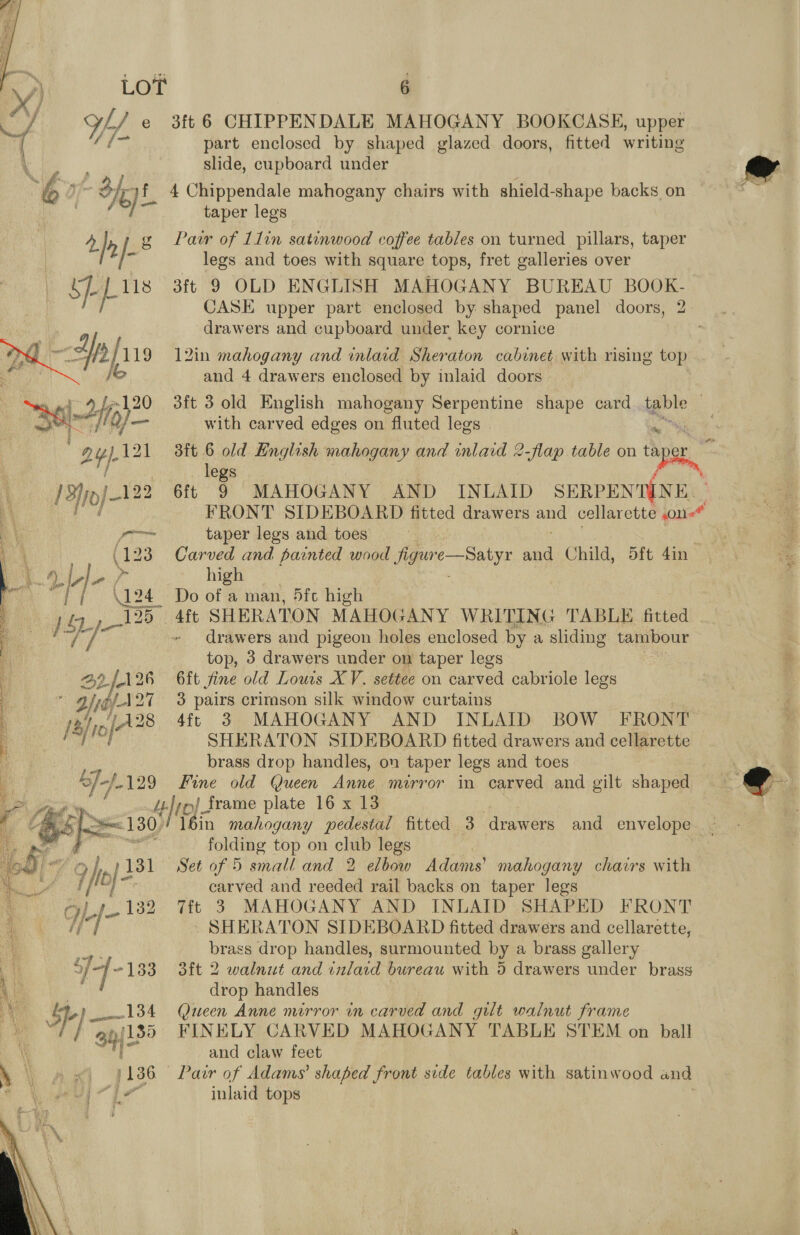 LOT 6
3ft 6 CHIPPENDALE MAHOGANY BOOKCASE, upper
part enclosed by shaped glazed doors, fitted writing
slide, cupboard under
4 Chippendale mahogany chairs with shield-shape backs on
taper legs
Pair of 11in satinwood coffee tables on turned pillars, taper
legs and toes with square tops, fret galleries over
118 3ft 9 OLD ENGLISH MAHOGANY BUREAU BOOK-
CASE upper part enclosed by shaped panel doors, 2
drawers and cupboard under key cornice
119 12in mahogany and inlaid Sheraton cabinet with rising top
and 4 drawers enclosed by inlaid doors
120 3ft 3 old English mahogany Serpentine shape card table
with carved edges on fluted legs
121 3ft 6 old English mahogany and inlaid 2-flap table on taper
legs
122 6ft 9 MAHOGANY AND INLAID SERPENTINE
FRONT SIDEBOARD fitted drawers and cellarette on
taper legs and toes
123 Carved and painted wood figure—Satyr and Child, 5ft 4in
high
124 Do of a man, 5ft high
125 4ft SHERATON MAHOGANY WRITING TABLE fitted
drawers and pigeon holes enclosed by a sliding tambour
top, 3 drawers under on taper legs
126 6ft fine old Louis XV. settee on carved cabriole legs
127 3 pairs crimson silk window curtains
128 4ft 3 MAHOGANY AND INLAID BOW FRONT
SHERATON SIDEBOARD fitted drawers and cellarette
brass drop handles, on taper legs and toes
129 Fine old Queen Anne mirror in carved and gilt shaped
frame plate 16 x 13
130 16in mahogany pedestal fitted 3 drawers and envelope
folding top on club legs
131 Set of 5 small and 2 elbow Adams' mahogany chairs with
carved and reeded rail backs on taper legs
132 7ft 3 MAHOGANY AND INLAID SHAPED FRONT
SHERATON SIDEBOARD fitted drawers and cellarette,
brass drop handles, surmounted by a brass gallery
133 3ft 2 walnut and inlaid bureau with 5 drawers under brass
drop handles
134 Queen Anne mirror in carved and gilt walnut frame
135 FINELY CARVED MAHOGANY TABLE STEM on ball
and claw feet
136 Pair of Adams' shaped front side tables with satinwood and
inlaid tops